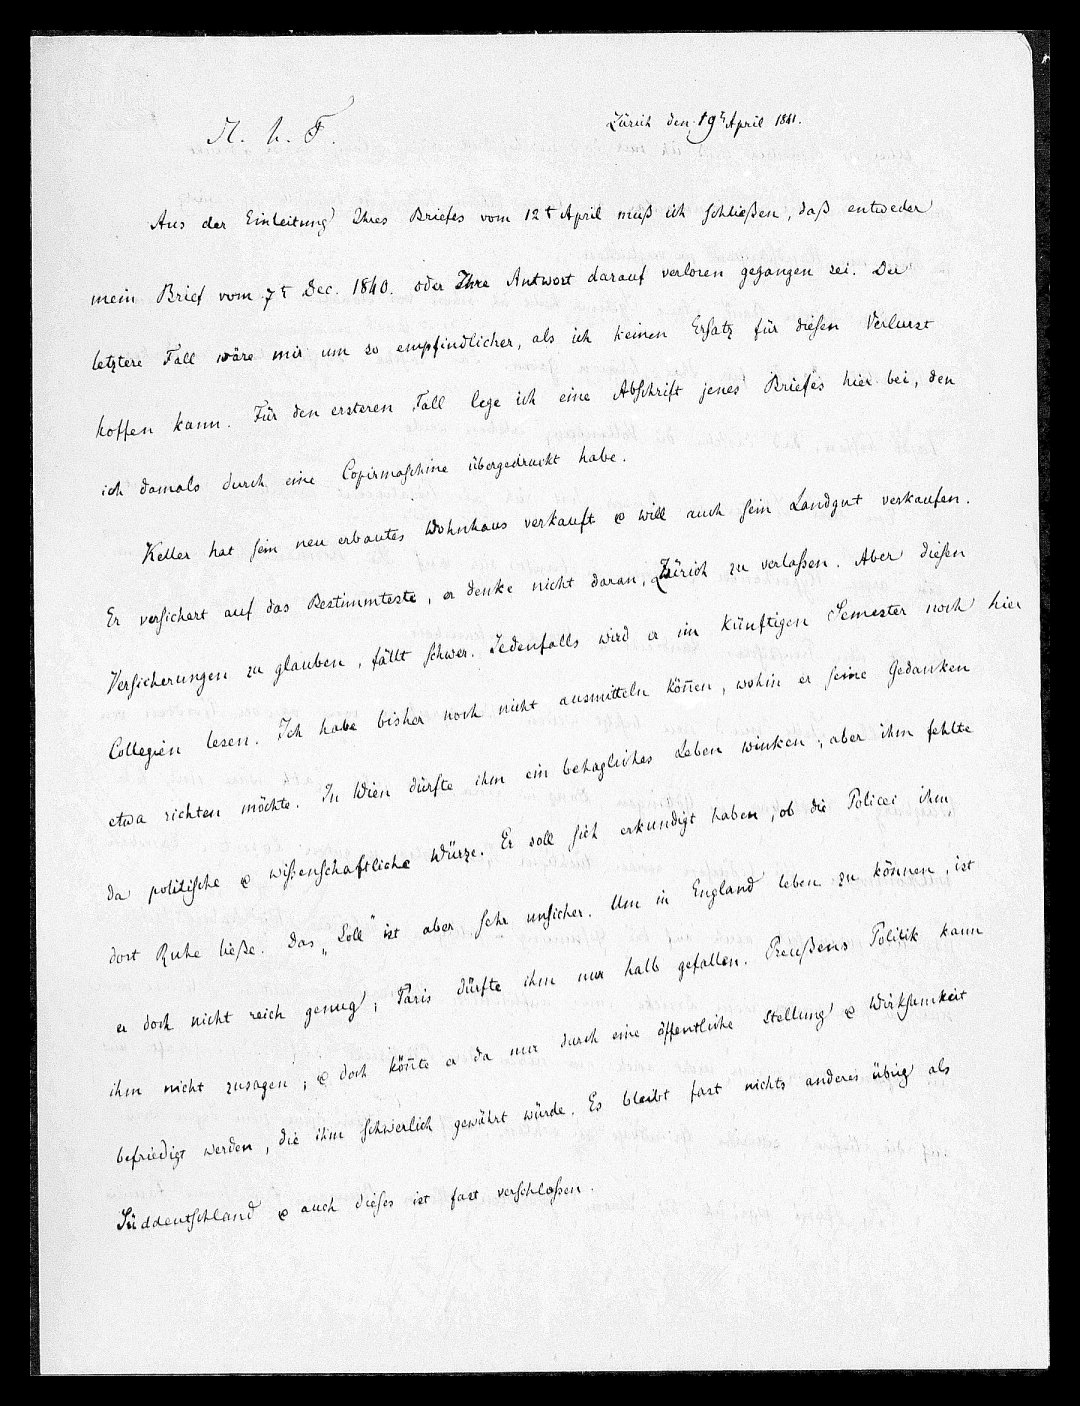 M. L. F.
Zürich den 19t April 1841.
Aus der Einleitung Ihres Briefes vom 12t April muß ich schließen, daß entweder
mein Brief vom 7t Dec. 1840. oder Ihre Antwort darauf verloren gegangen sei. Der
letztere Fall wäre mir um so empfindlicher, als ich keinen Ersatz für diesen Verlurst
hoffen kann. Für den ersteren Fall lege ich eine Abschrift jenes Briefes hier bei, den
ich damals durch eine Copirmaschine übergedruckt habe.
Keller hat sein neu erbautes Wohnhaus verkauft & will auch sein Landgut verkaufen.
Er versichert auf das Bestimmteste, er denke nicht daran, Zürich zu verlaßen. Aber diesen
Versicherungen zu glauben, fällt schwer. Jedenfalls wird er im künftigen Semester noch hier
Collegien lesen. Ich habe bisher noch nicht ausmitteln kön̄en, wohin er seine Gedanken
etwa richten möchte. In Wien dürfte ihm ein behagliches Leben winken; aber ihm fehlte
da politische & wißenschaftliche Würze. Er soll sich erkundigt haben, ob die Policei ihm
dort Ruhe ließe. Das „Soll" ist aber sehr unsicher. Um in England leben zu können, ist
er doch nicht reich genug; Paris dürfte ihm nur halb gefallen. Preußens Politik kann
ihm nicht zusagen; & doch kön̄te er da nur durch eine öffentliche Stellung & Wirksamkeit
befriedigt werden, die ihm schwerlich gewährt würde. Es bleibt fast nichts anderes übrig als
Süddeutschland & auch dieses ist fast verschloßen.